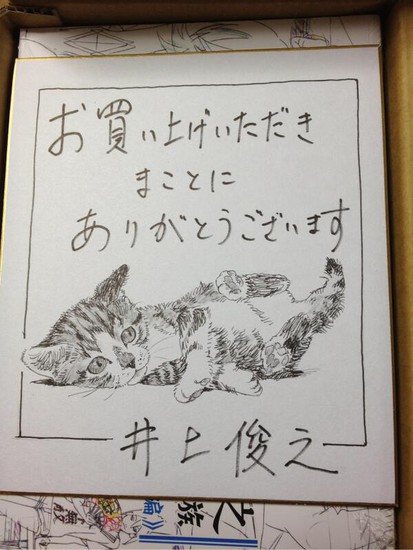 お買い上げいただき
まことに
ありがとうございます
井上俊之
族
編》